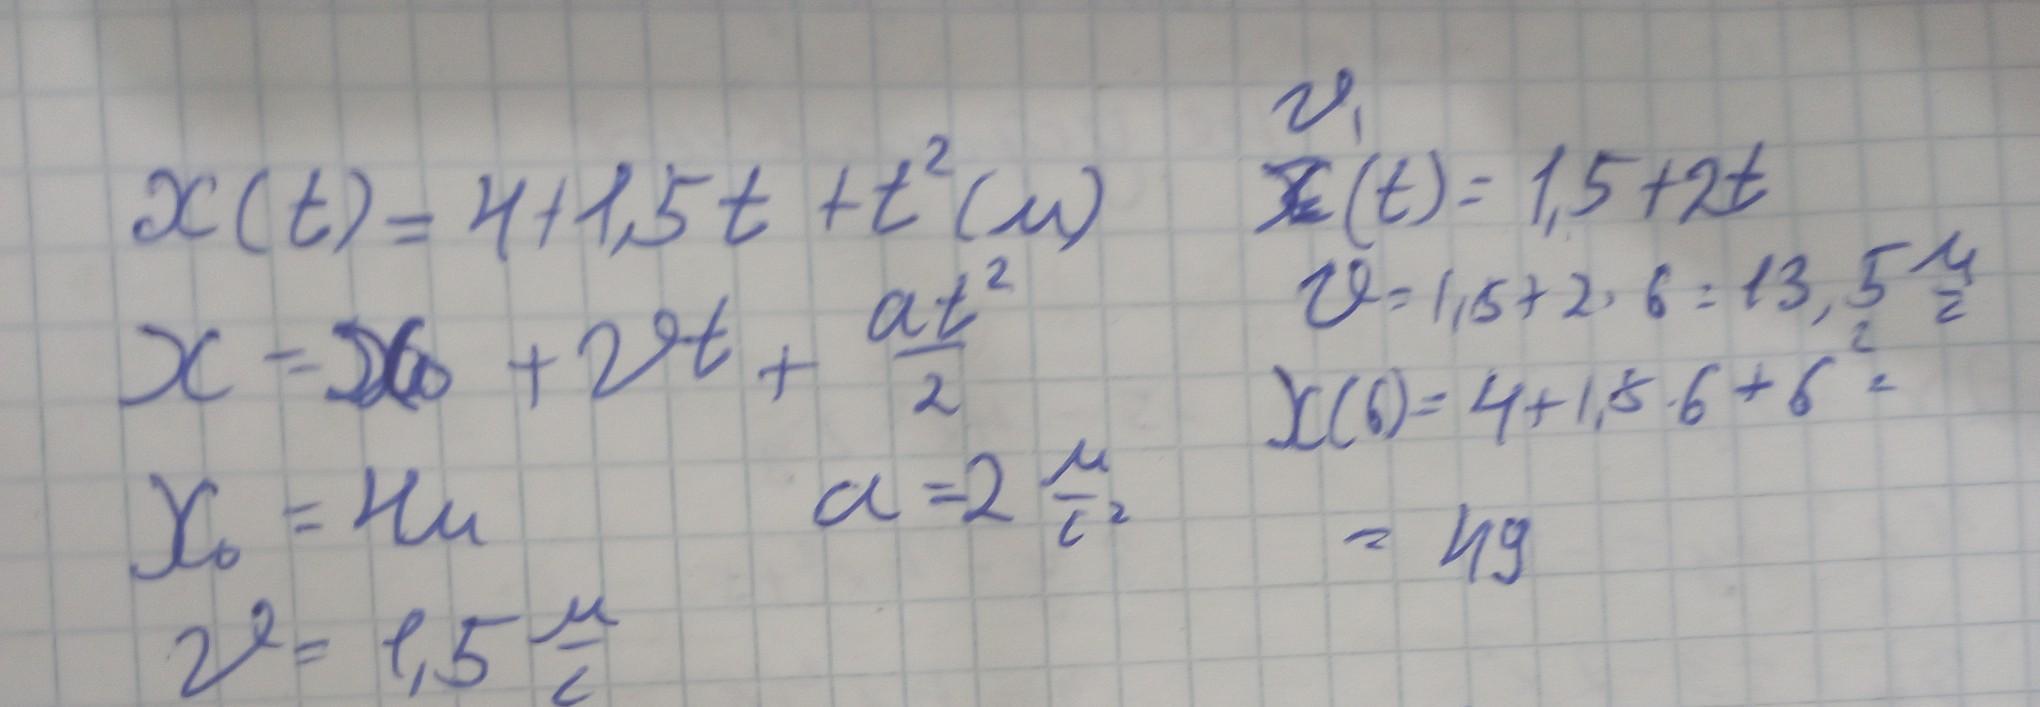 x(t) = 4+1,5t + t² (м)
x = x₀ + vt + at²/2
x₀ = 4м
a = 2 м/с²
v = 1,5 м/с
v₁
(t) = 1,5+2t
v = 1,5+2·6 = 13,5 м/с
x(6) = 4+1,5·6+6² =
= 49